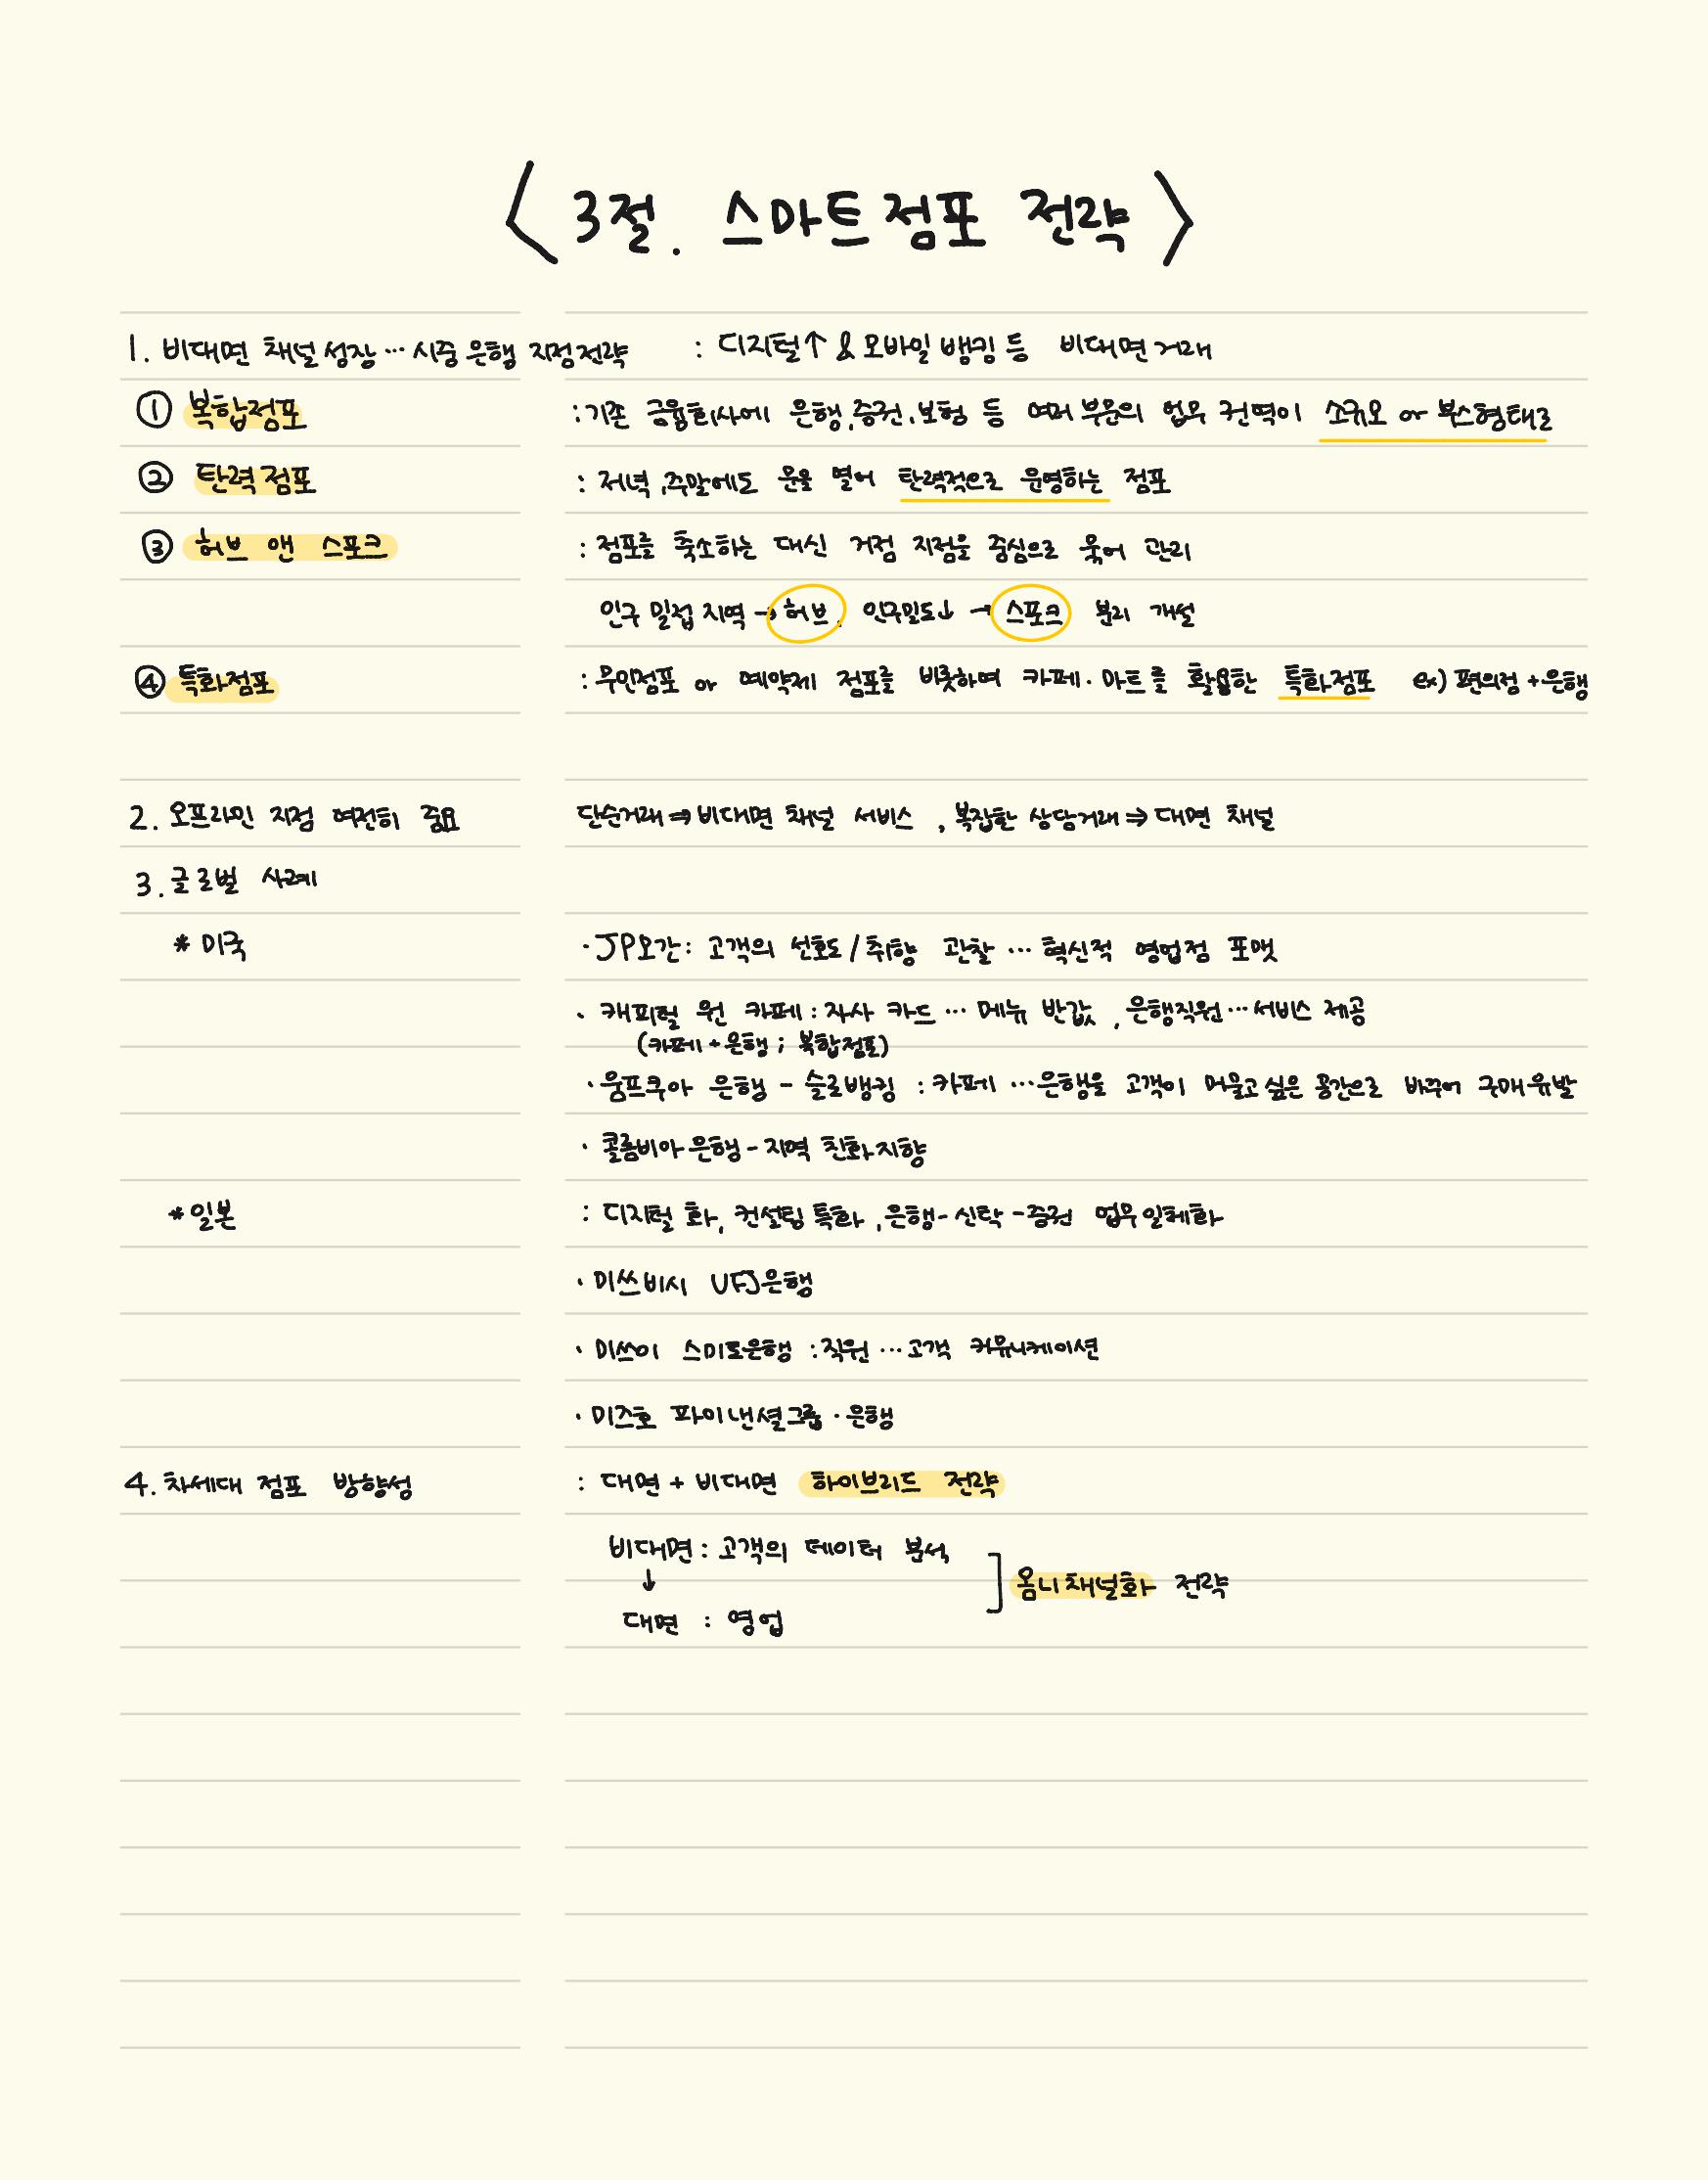 < 3절. 스마트점포 전략 >
1. 비대면 채널성장… 시중은행 지점전략 : 디지털↑ & 모바일뱅킹 등 비대면거래
① 복합점포 : 기존 금융회사에 은행, 증권, 보험 등 여러 부문의 업무 권역이 소규모 or 부스형태로
② 탄력점포 : 저녁, 주말에도 문을 열어 탄력적으로 운영하는 점포
③ 허브 앤 스포크 : 점포를 축소하는 대신 거점 지점을 중심으로 묶어 관리
인구 밀접 지역 → 허브, 인구밀도↓ → 스포크 분리 개설
④ 특화점포 : 무인점포 or 예약제 점포를 비롯하여 카페·마트를 활용한 특화점포 ex) 편의점+은행
2. 오프라인 지점 여전히 중요 단순거래⇒비대면 채널 서비스, 복잡한 상담거래⇒대면 채널
3. 글로벌 사례
* 미국 · JP모간 : 고객의 선호도/취향 관찰 … 혁신적 영업점 포맷
· 캐피털 원 카페 : 자사 카드 … 메뉴 반값, 은행직원…서비스 제공
(카페+은행 ; 복합점포)
· 움프쿠아 은행 - 슬로뱅킹 : 카페 …은행을 고객이 머물고 싶은 공간으로 바꾸어 구매유발
· 콜롬비아은행 - 지역 친화지향
* 일본 : 디지털 화, 컨설팅 특화, 은행-신탁-증권 업무일체화
· 미쓰비시 UFJ은행
· 미쓰이 스미토은행 : 직원 … 고객 커뮤니케이션
· 미즈호 파이낸셜그룹·은행
4. 차세대 점포 방향성 : 대면 + 비대면 하이브리드 전략
비대면 : 고객의 데이터 분석
↓ ] 옴니채널화 전략
대면 : 영업